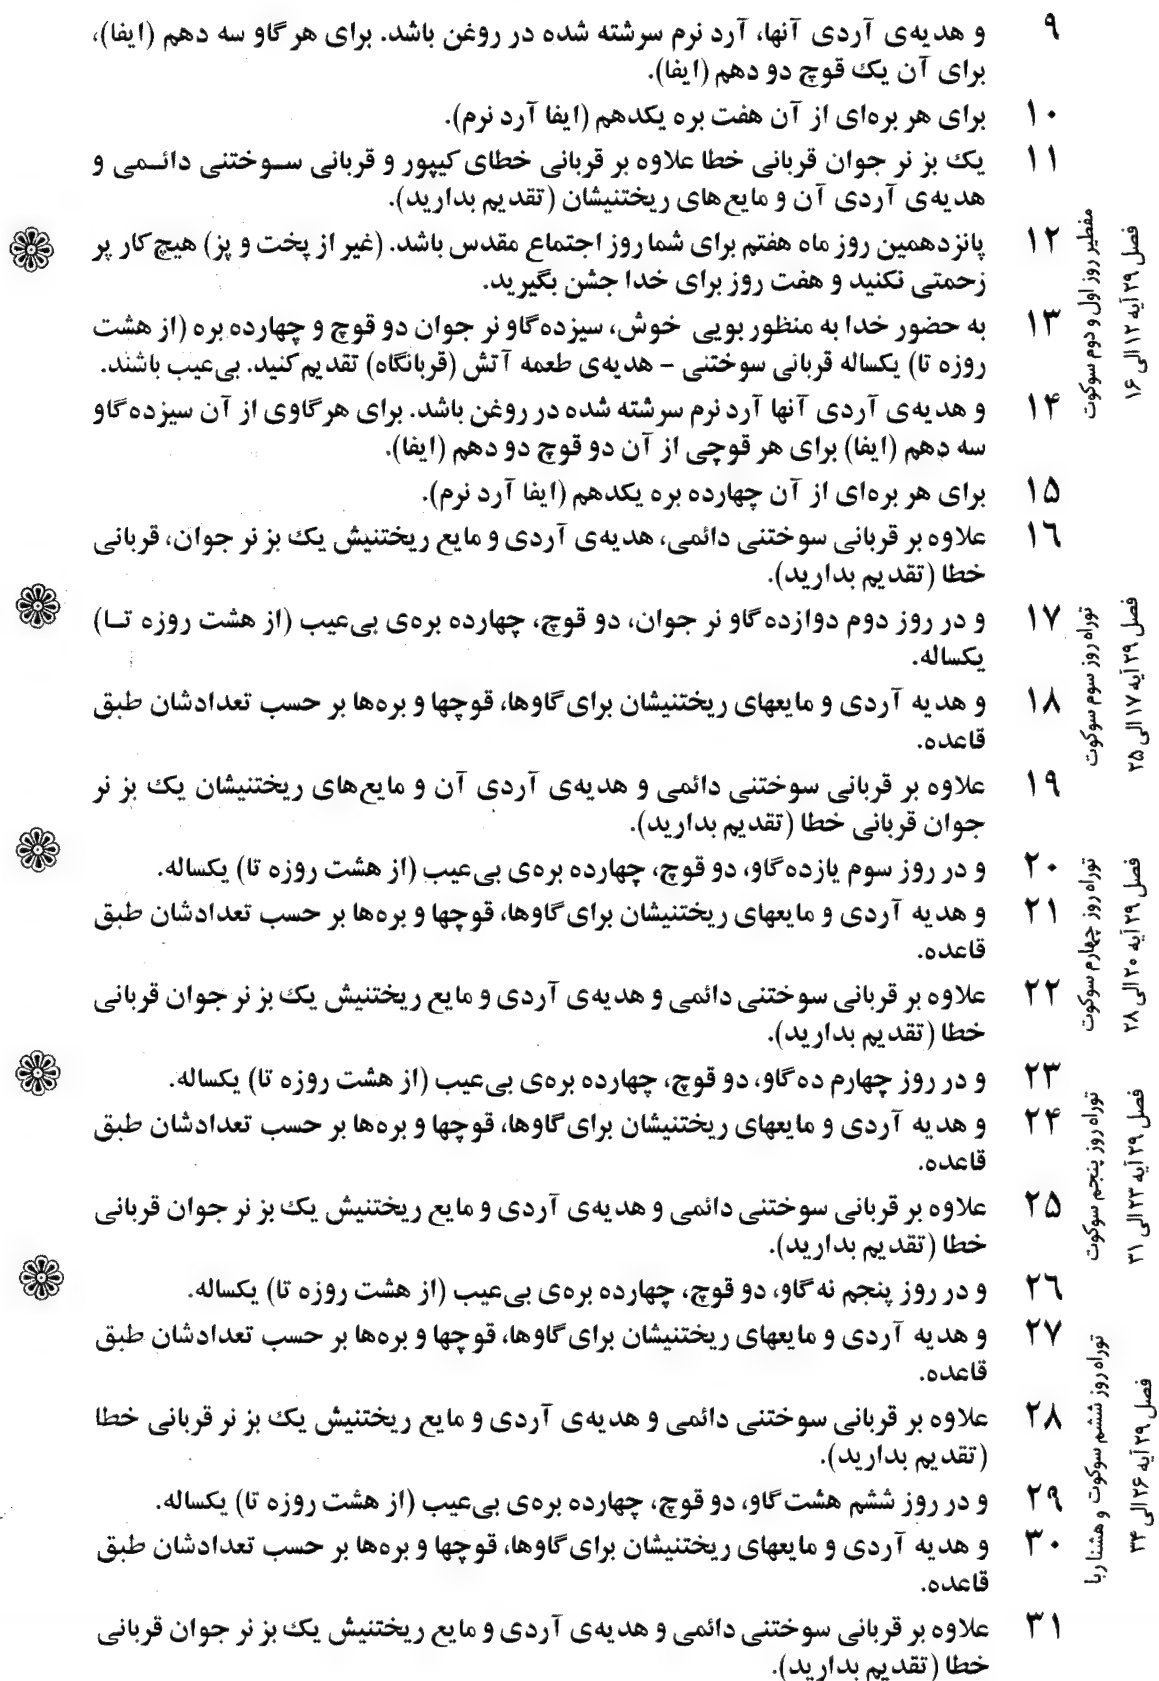 ۹ و هدیه‌ی آردی آنها، آرد نرم سرشته شده در روغن باشد. برای هر گاو سه دهم (ایفا)،
برای آن یک قوچ دو دهم (ایفا).
۱۰ برای هر بره‌ای از آن هفت بره یکدهم (ایفا آرد نرم).
۱۱ یک بز نر جوان قربانی خطا علاوه بر قربانی خطای کیپور و قربانی سوختنی دائمی و
هدیه‌ی آردی آن و مایع‌های ریختنیشان (تقدیم بدارید).
۱۲ پانزدهمین روز ماه هفتم برای شما روز اجتماع مقدس باشد. (غیر از پخت و پز) هیچ کار پر
زحمتی نکنید و هفت روز برای خدا جشن بگیرید.
۱۳ به حضور خدا به منظور بویی خوش، سیزده گاو نر جوان دو قوچ و چهارده بره (از هشت
روزه تا) یکساله قربانی سوختنی – هدیه‌ی طعمه آتش (قربانگاه) تقدیم کنید. بی‌عیب باشند.
۱۴ و هدیه‌ی آردی آنها آرد نرم سرشته شده در روغن باشد. برای هر گاوی از آن سیزده گاو
سه دهم (ایفا) برای هر قوچی از آن دو قوچ دو دهم (ایفا).
۱۵ برای هر بره‌ای از آن چهارده بره یکدهم (ایفا آرد نرم).
۱۶ علاوه بر قربانی سوختنی دائمی، هدیه‌ی آردی و مایع ریختنیش یک بز نر جوان، قربانی
خطا (تقدیم بدارید).
۱۷ و در روز دوم دوازده گاو نر جوان، دو قوچ، چهارده بره‌ی بی‌عیب (از هشت روزه تا)
یکساله.
۱۸ و هدیه آردی و مایعهای ریختنیشان برای گاوها، قوچها و بره‌ها بر حسب تعدادشان طبق
قاعده.
۱۹ علاوه بر قربانی سوختنی دائمی و هدیه‌ی آردی آن و مایع‌های ریختنیشان یک بز نر
جوان قربانی خطا (تقدیم بدارید).
۲۰ و در روز سوم یازده گاو، دو قوچ، چهارده بره‌ی بی‌عیب (از هشت روزه تا) یکساله.
۲۱ و هدیه آردی و مایعهای ریختنیشان برای گاوها، قوچها و بره‌ها بر حسب تعدادشان طبق
قاعده.
۲۲ علاوه بر قربانی سوختنی دائمی و هدیه‌ی آردی و مایع ریختنیش یک بز نر جوان قربانی
خطا (تقدیم بدارید).
۲۳ و در روز چهارم ده گاو، دو قوچ، چهارده بره‌ی بی‌عیب (از هشت روزه تا) یکساله.
۲۴ و هدیه آردی و مایعهای ریختنیشان برای گاوها، قوچها و بره‌ها بر حسب تعدادشان طبق
قاعده.
۲۵ علاوه بر قربانی سوختنی دائمی و هدیه‌ی آردی و مایع ریختنیش یک بز نر جوان قربانی
خطا (تقدیم بدارید).
۲۶ و در روز پنجم نه گاو، دو قوچ، چهارده بره‌ی بی‌عیب (از هشت روزه تا) یکساله.
۲۷ و هدیه آردی و مایعهای ریختنیشان برای گاوها، قوچها و بره‌ها بر حسب تعدادشان طبق
قاعده.
۲۸ علاوه بر قربانی سوختنی دائمی و هدیه‌ی آردی و مایع ریختنیش یک بز نر قربانی خطا
(تقدیم بدارید).
۲۹ و در روز ششم هشت گاو، دو قوچ، چهارده بره‌ی بی‌عیب (از هشت روزه تا) یکساله.
۳۰ و هدیه آردی و مایعهای ریختنیشان برای گاوها، قوچها و بره‌ها بر حسب تعدادشان طبق
قاعده.
۳۱ علاوه بر قربانی سوختنی دائمی و هدیه‌ی آردی و مایع ریختنیش یک بز نر جوان قربانی
خطا (تقدیم بدارید).
مفطیر روز اول و دوم سوکوت
فصل ۲۹ آیه ۱۲ الی ۱۶
توراه روز سوم سوکوت
فصل ۲۹ آیه ۱۷ الی ۲۵
توراه روز چهارم سوکوت
فصل ۲۹ آیه ۲۰ الی ۲۸
توراه روز پنجم سوکوت
فصل ۲۹ آیه ۲۳ الی ۳۱
توراه روز ششم سوکوت و هشنا ربا
فصل ۲۹ آیه ۲۶ الی ۳۴